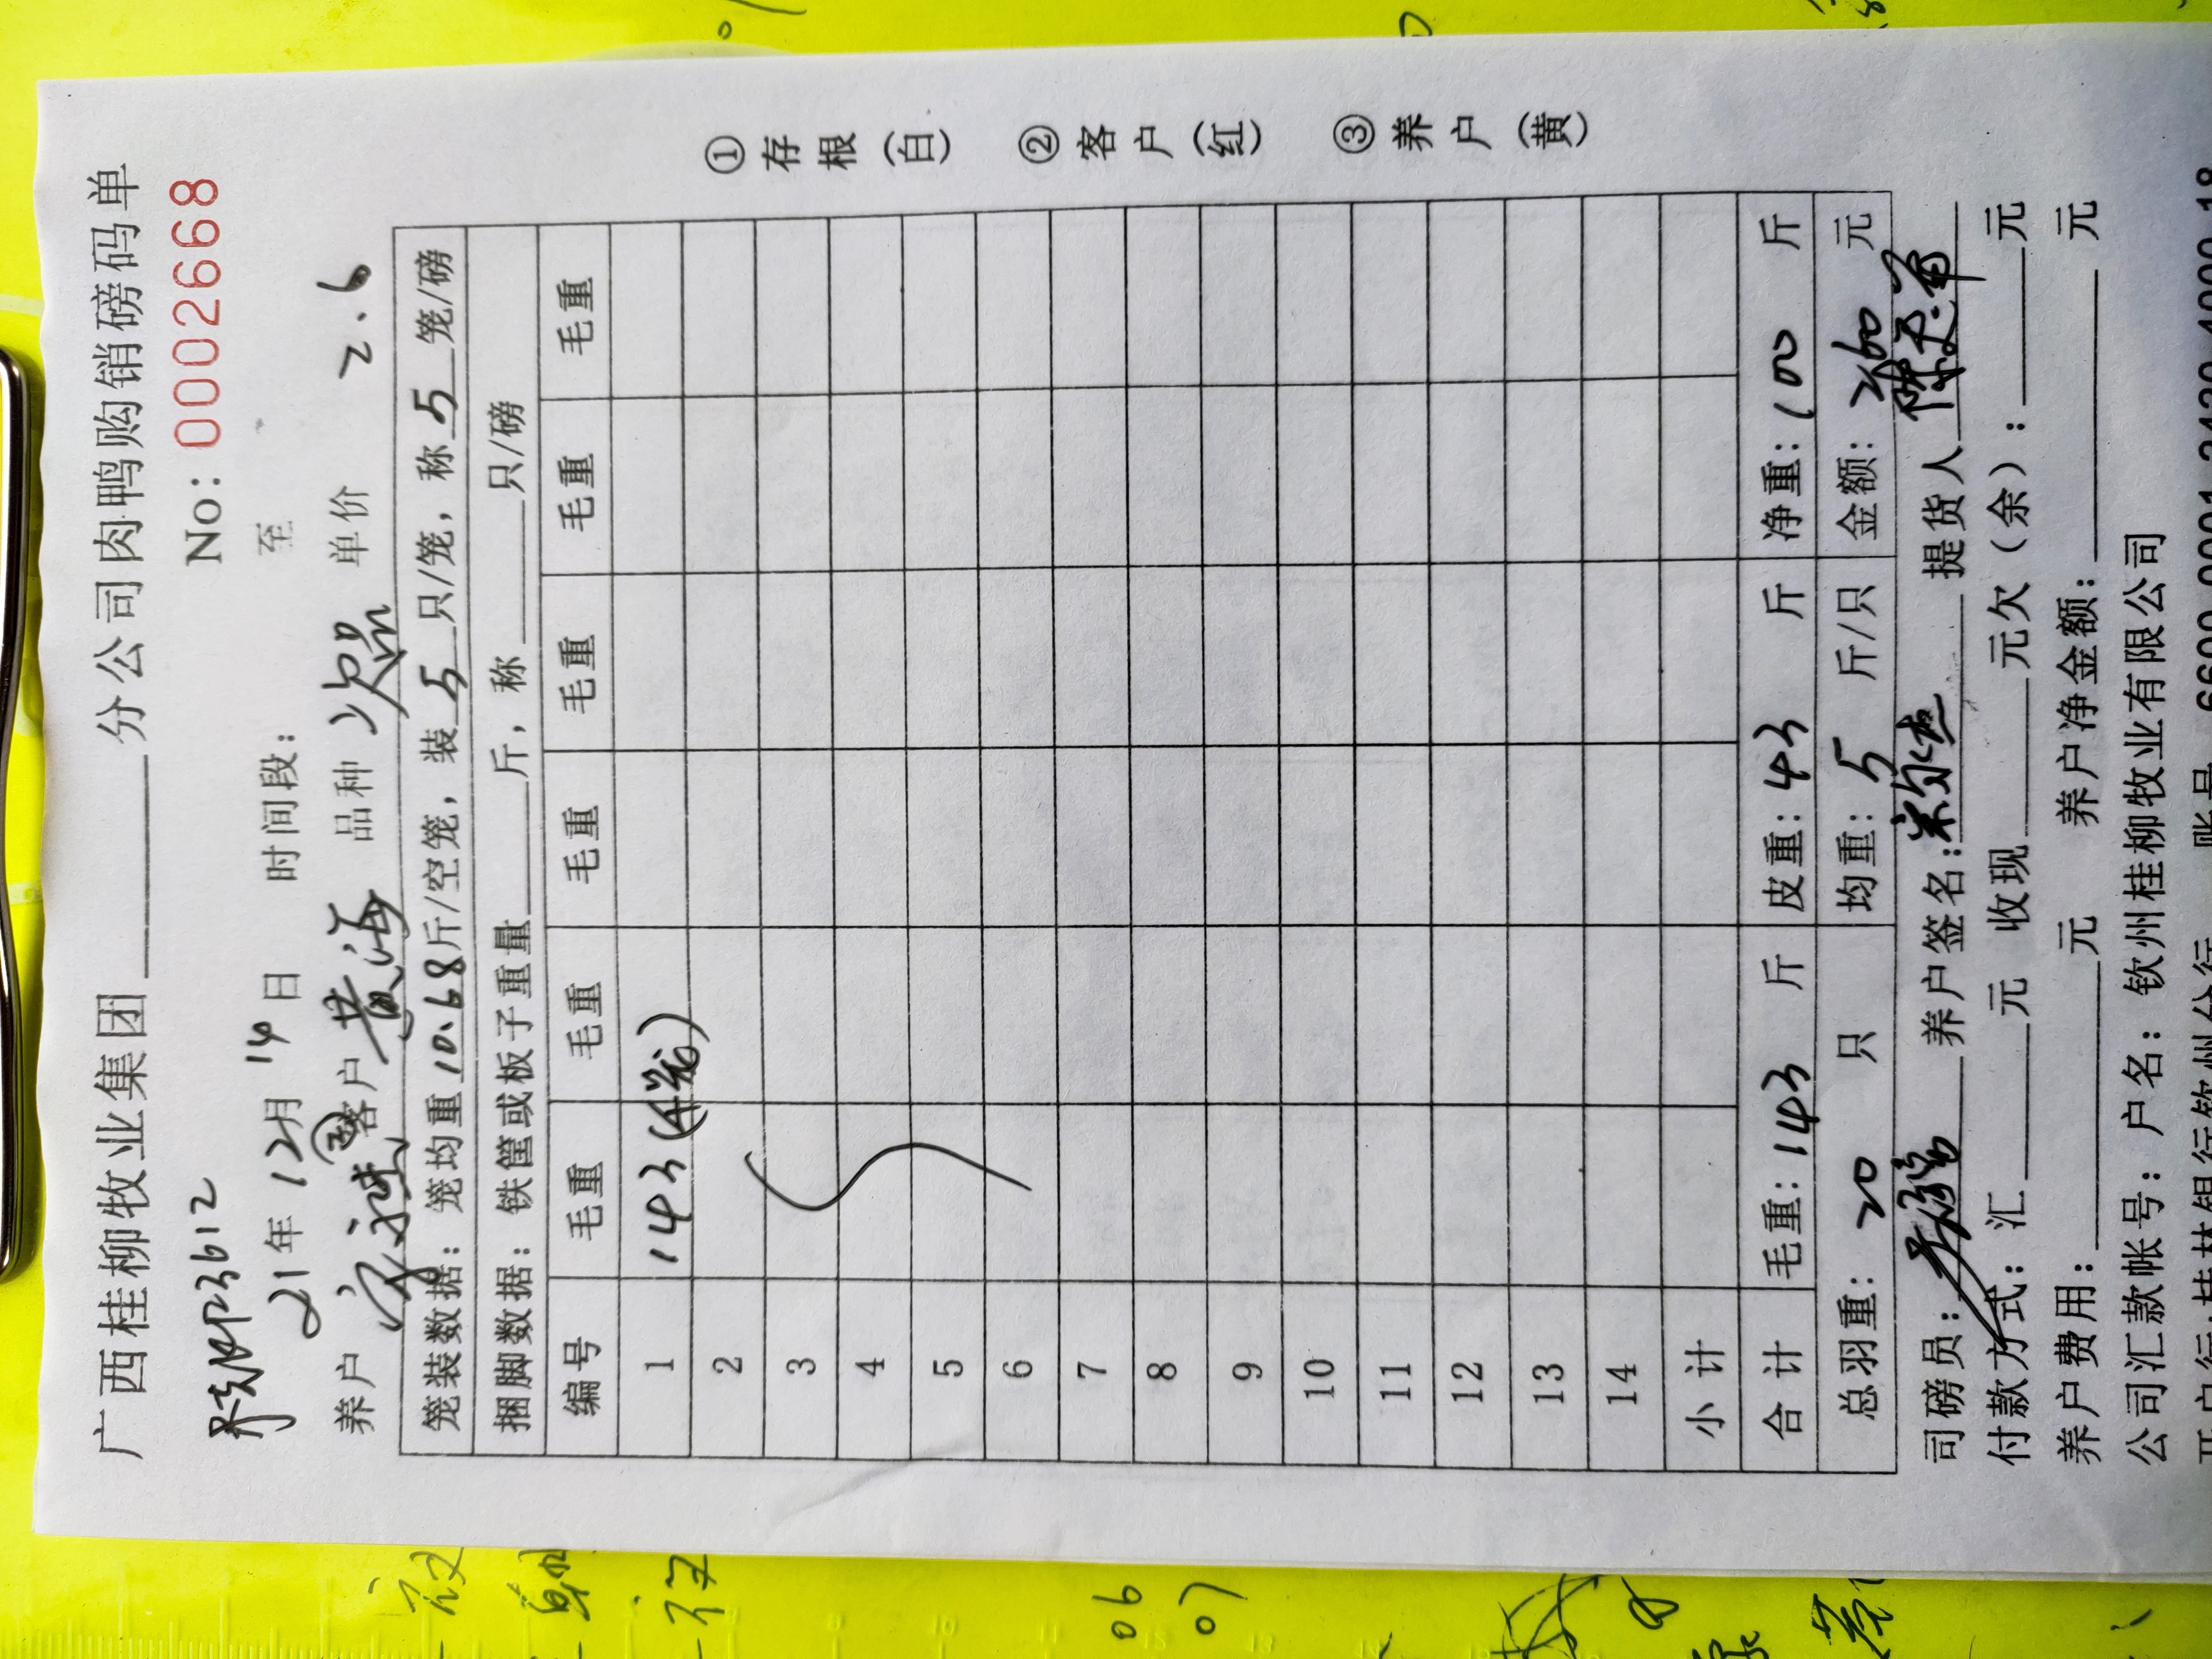 广西桂柳牧业集团______分公司肉鸭购销磅码单
No: 0002668
23612
21年12月14日 时间段: 至
养户 客户 黄海 品种 次品 单价 2.6
笼装数据: 笼均重10.68斤/空笼, 装5只/笼, 称5笼/磅
捆脚数据: 铁筐或板子重量____斤, 称____只/磅
编号 毛重 毛重 毛重 毛重 毛重 毛重
1 143 (4笼)
2
3
4
5
6
7
8
9
10
11
12
13
14
小计
合计 毛重: 143 斤 皮重: 43 斤 净重: 100 斤
总羽重: 20 只 均重: 5 斤/只 金额: 260 元
司磅员: 养户签名: 提货人
付款方式: 汇____元 收现____元欠(余): ____元
养户费用: ____元 养户净金额: ____元
公司汇款帐号: 户名: 钦州桂柳牧业有限公司
开户行:桂林银行钦州分行 账号
①存根(白) ②客户(红) ③养户(黄)
06
07